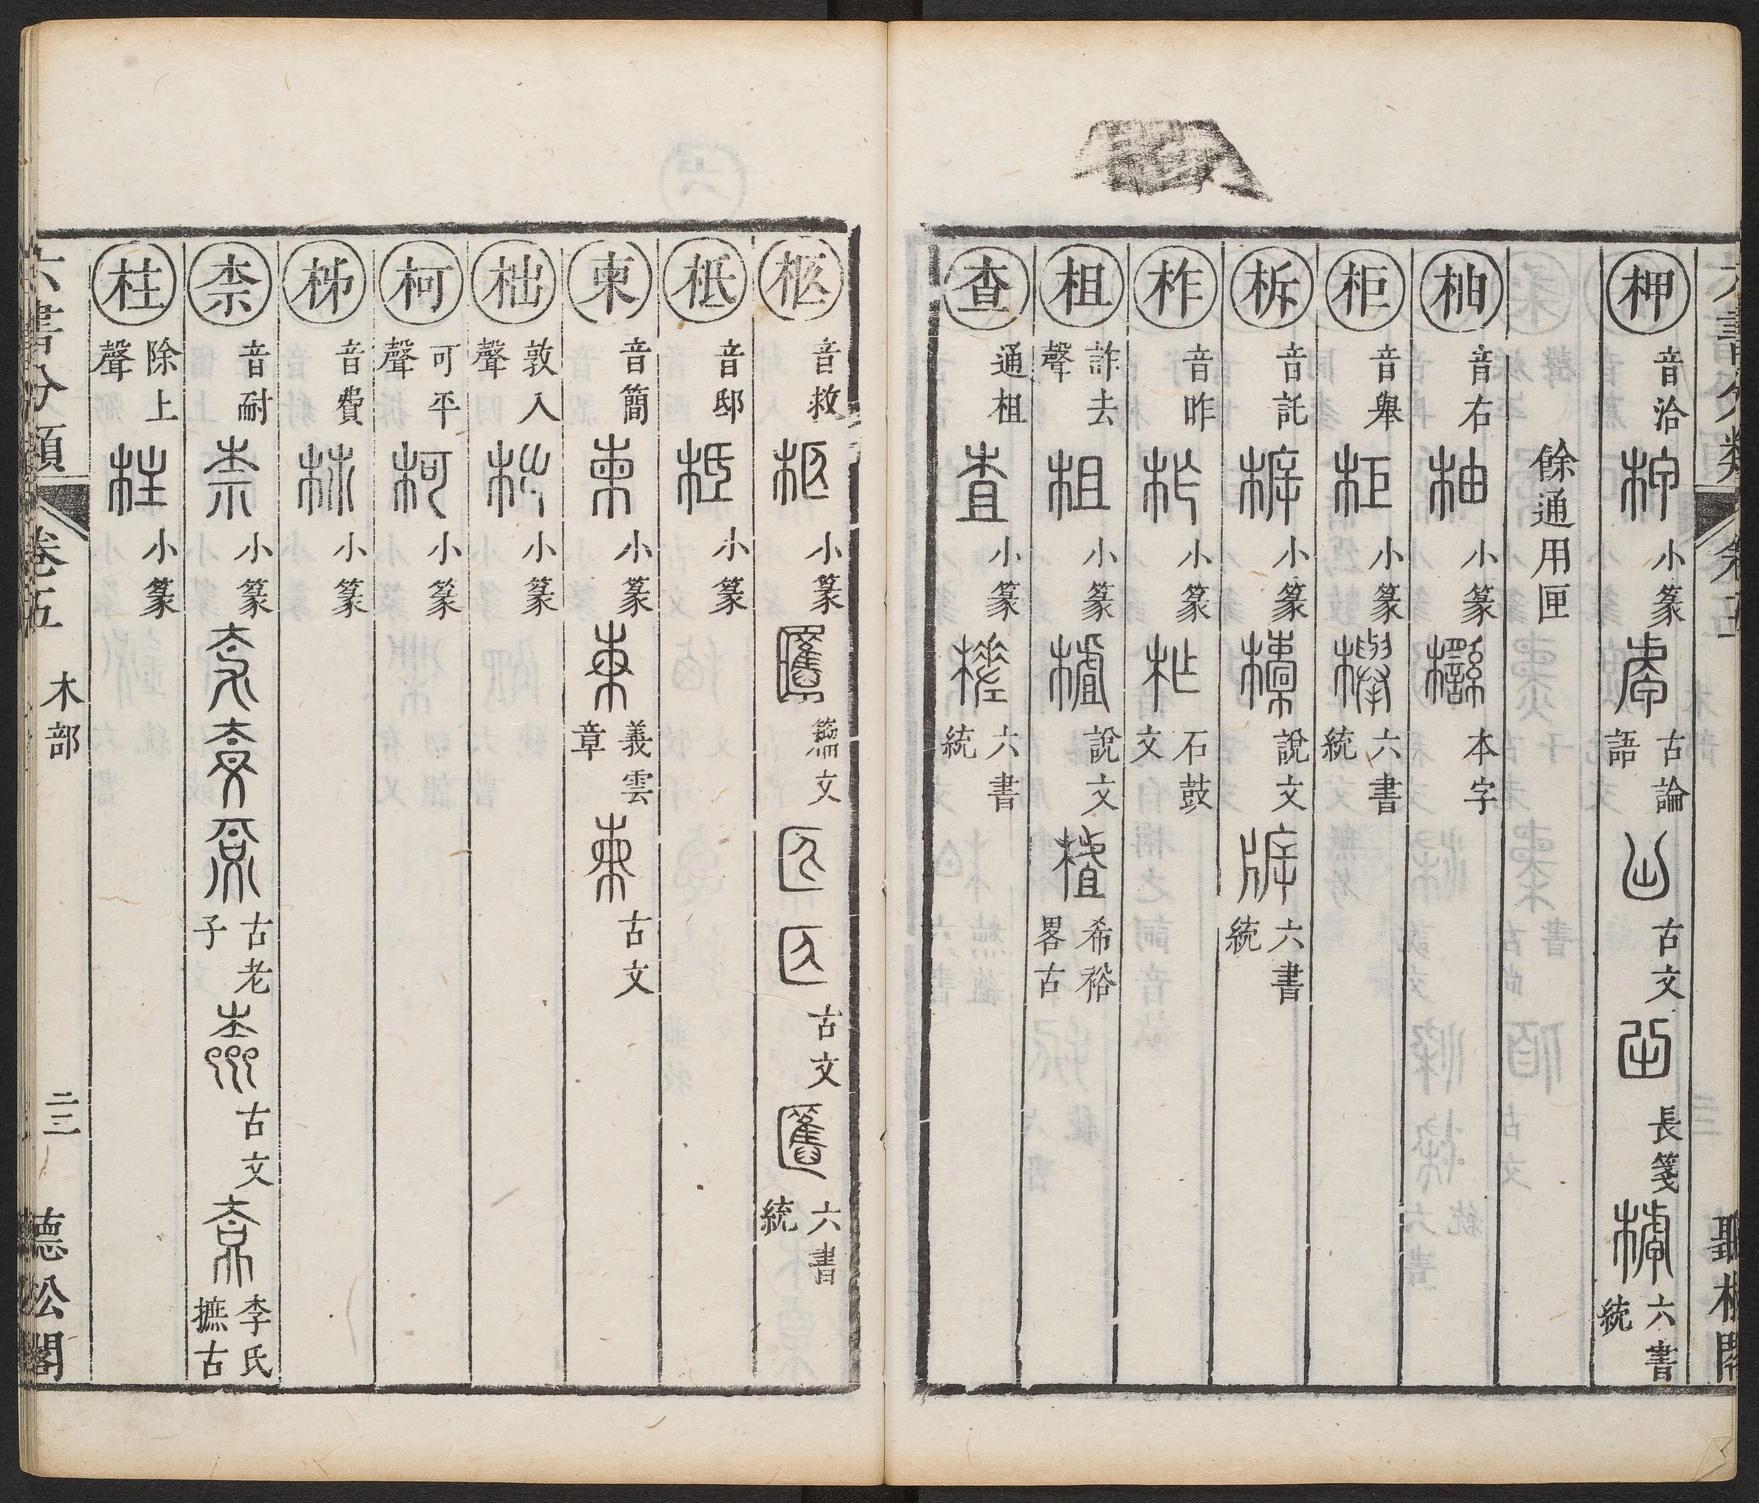 六書分類 卷五 聽松閣
柙 音洽 小篆 古論語 古文 長箋 六書統
餘通用匣
柚 音右 小篆 本字
柜 音舉 小篆 六書統
柝 音託 小篆 說文 六書統
柞 音昨 小篆 石鼓文
柤 詐去聲 小篆 說文 希裕畧古
查 通柤 小篆 六書統
柩 音救 小篆 籀文 古文 六書統
柢 音邸 小篆
柬 音簡 小篆 義雲章 古文
柮 敦入聲 小篆
柯 可平聲 小篆
柹 音費 小篆
柰 音耐 小篆 古老子 古文 李氏摭古
柱 除上聲 小篆
六書分類 卷五 木部 二三 聽松閣